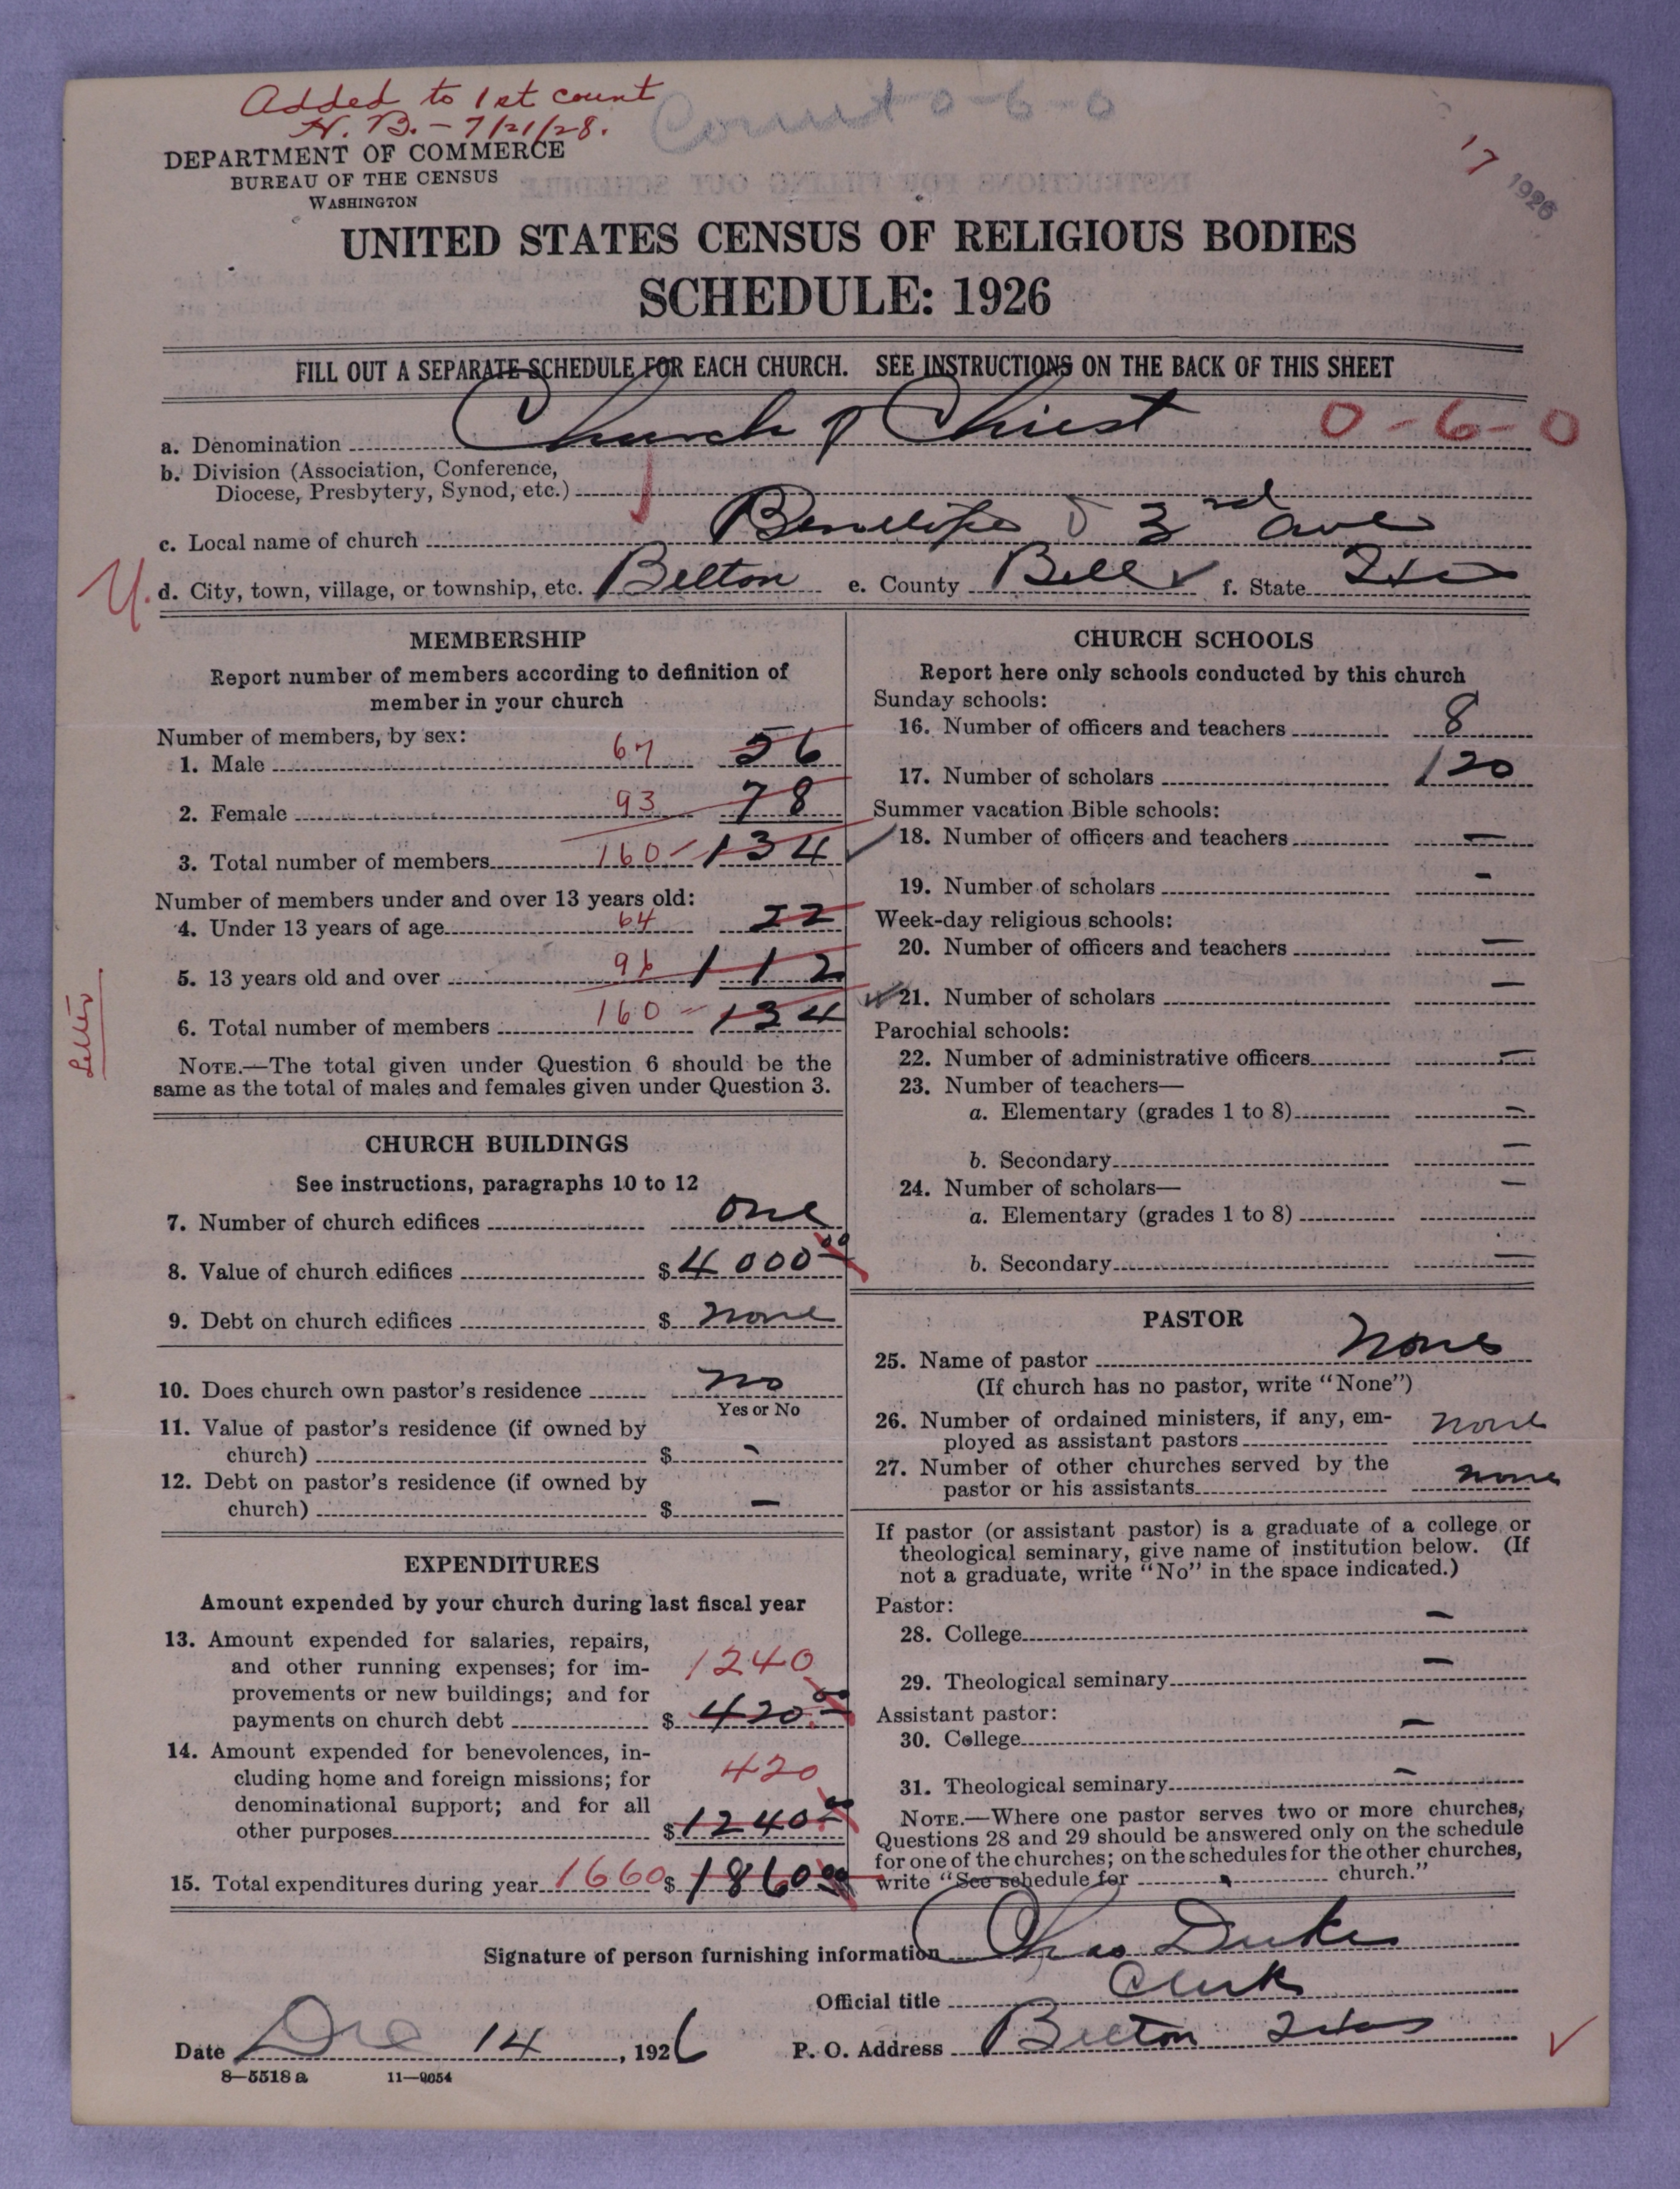 Added to 1st count
H. B. - 7/21/28.
Count 0-6-0
17
1926
DEPARTMENT OF COMMERCE
BUREAU OF THE CENSUS
WASHINGTON
UNITED STATES CENSUS OF RELIGIOUS BODIES
SCHEDULE: 1926
FILL OUT A SEPARATE SCHEDULE FOR EACH CHURCH. SEE INSTRUCTIONS ON THE BACK OF THIS SHEET
a. Denomination Church of Christ 0-6-0
b. Division (Association, Conference,
Diocese, Presbytery, Synod, etc.)
c. Local name of church 3rd ave
U. d. City, town, village, or township, etc. Belton e. County Bell f. State Tex
MEMBERSHIP
Report number of members according to definition of
member in your church
Number of members, by sex:
1. Male 67 56
2. Female 93 78
3. Total number of members 160 134
Number of members under and over 13 years old:
4. Under 13 years of age 64 22
5. 13 years old and over 96 112
6. Total number of members 160 134
Letter
NOTE.—The total given under Question 6 should be the
same as the total of males and females given under Question 3.
CHURCH BUILDINGS
See instructions, paragraphs 10 to 12
7. Number of church edifices one
8. Value of church edifices $ 4000 00
9. Debt on church edifices $ none
10. Does church own pastor's residence no
Yes or No
11. Value of pastor's residence (if owned by
church) $ -
12. Debt on pastor's residence (if owned by
church) $ -
EXPENDITURES
Amount expended by your church during last fiscal year
13. Amount expended for salaries, repairs,
and other running expenses; for im-
provements or new buildings; and for
payments on church debt 1240 $ 420.00
14. Amount expended for benevolences, in-
cluding home and foreign missions; for
denominational support; and for all
other purposes 420 $ 1240.00
15. Total expenditures during year 1660 $ 1860 00
CHURCH SCHOOLS
Report here only schools conducted by this church
Sunday schools:
16. Number of officers and teachers 8
17. Number of scholars 120
Summer vacation Bible schools:
18. Number of officers and teachers -
19. Number of scholars -
Week-day religious schools:
20. Number of officers and teachers -
21. Number of scholars -
Parochial schools:
22. Number of administrative officers -
23. Number of teachers—
a. Elementary (grades 1 to 8) -
b. Secondary -
24. Number of scholars—
a. Elementary (grades 1 to 8) -
b. Secondary -
PASTOR
25. Name of pastor None
(If church has no pastor, write "None")
26. Number of ordained ministers, if any, em-
ployed as assistant pastors none
27. Number of other churches served by the
pastor or his assistants none
If pastor (or assistant pastor) is a graduate of a college or
theological seminary, give name of institution below. (If
not a graduate, write "No" in the space indicated.)
Pastor:
28. College -
29. Theological seminary -
Assistant pastor:
30. College -
31. Theological seminary -
NOTE.—Where one pastor serves two or more churches,
Questions 28 and 29 should be answered only on the schedule
for one of the churches; on the schedules for the other churches,
write "See schedule for church."
Signature of person furnishing information Chas Dukes
Official title Clerk
Date Dec 14, 1926 P. O. Address Belton Texas
8—5518 a 11—9054